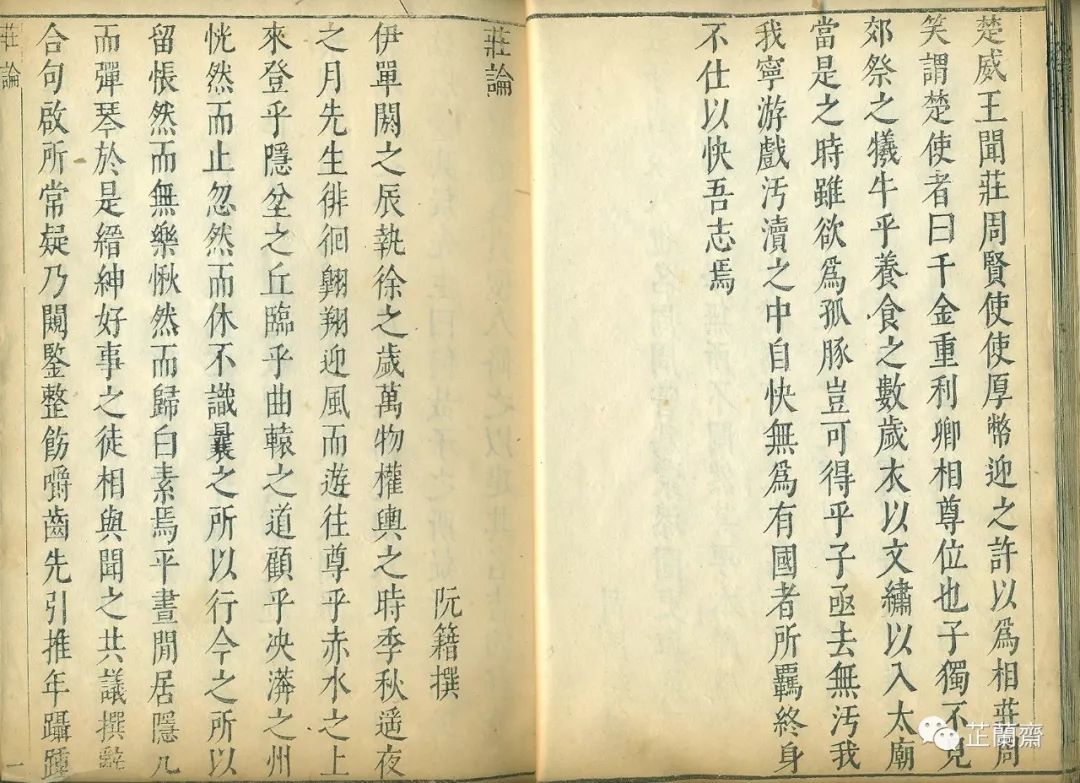 楚威王聞莊周賢使使厚幣迎之許以爲相莊周
笑謂楚使者曰千金重利卿相尊位也子獨不見
郊祭之犧牛乎養食之數歲衣以文繡以入太廟
當是之時雖欲爲孤豚豈可得乎子亟去無汚我
我寧游戲汚瀆之中自快無爲有國者所羈終身
不仕以快吾志焉
莊論
阮籍撰
伊單閼之辰執徐之歲萬物權輿之時季秋遥夜
之月先生徘徊翱翔迎風而遊往尊乎赤水之上
來登乎隱坌之丘臨乎曲轅之道顧乎泱漭之州
恍然而止忽然而休不識曩之所以行今之所以
留悵然而無樂愀然而歸白素焉平晝閒居隱几
而彈琴於是縉紳好事之徒相與聞之共議撰辭
合句啟所常疑乃闚鑒整飭嚼齒先引推年躡踵
莊論
一
芷蘭齋